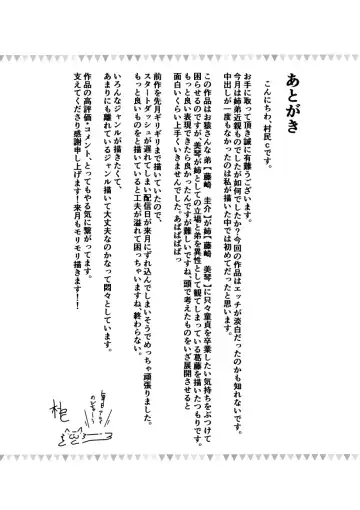 あとがき
こんにちわ、村民cです。
お手に取って頂き誠に有難うございます。
今月は姉弟近親ものでしたが如何でしたか?今回の作品はエッチが淡白だったのかも知れないです。
中出しが一度もなかったのは私が描いた中では初めてだったと思います。
この作品はお猿さんな弟【藤崎 圭介】が姉【藤崎 美琴】に只々童貞を卒業したい気持ちをぶつけて
困らせるのですが、美琴が姉としての立場と弟を異性として観てしまっている葛藤を描いたつもりです。
もっと良い表現できたら良かったんですが難しいですね、頭で考えたものをいざ展開させると
面白いくらい上手くいきませんでした、あばばばばっ
前作を先月ギリギリまで描いていたので、
スタートダッシュが遅れてしまい配信日が来月にずれ込んでしまいそうでめっちゃ頑張りました。
もっと良いものをと描いていると工夫が溢れて困っちゃいますね、終わらない。
いろんなジャンルが描きたくて、
あまりにも離れているジャンル描いて大丈夫なのかなって悶々としています。
作品の高評価・コメント、とってもやる気に繋がってます。
支えてくださり感謝申し上げます!来月もモリモリ描きます!!